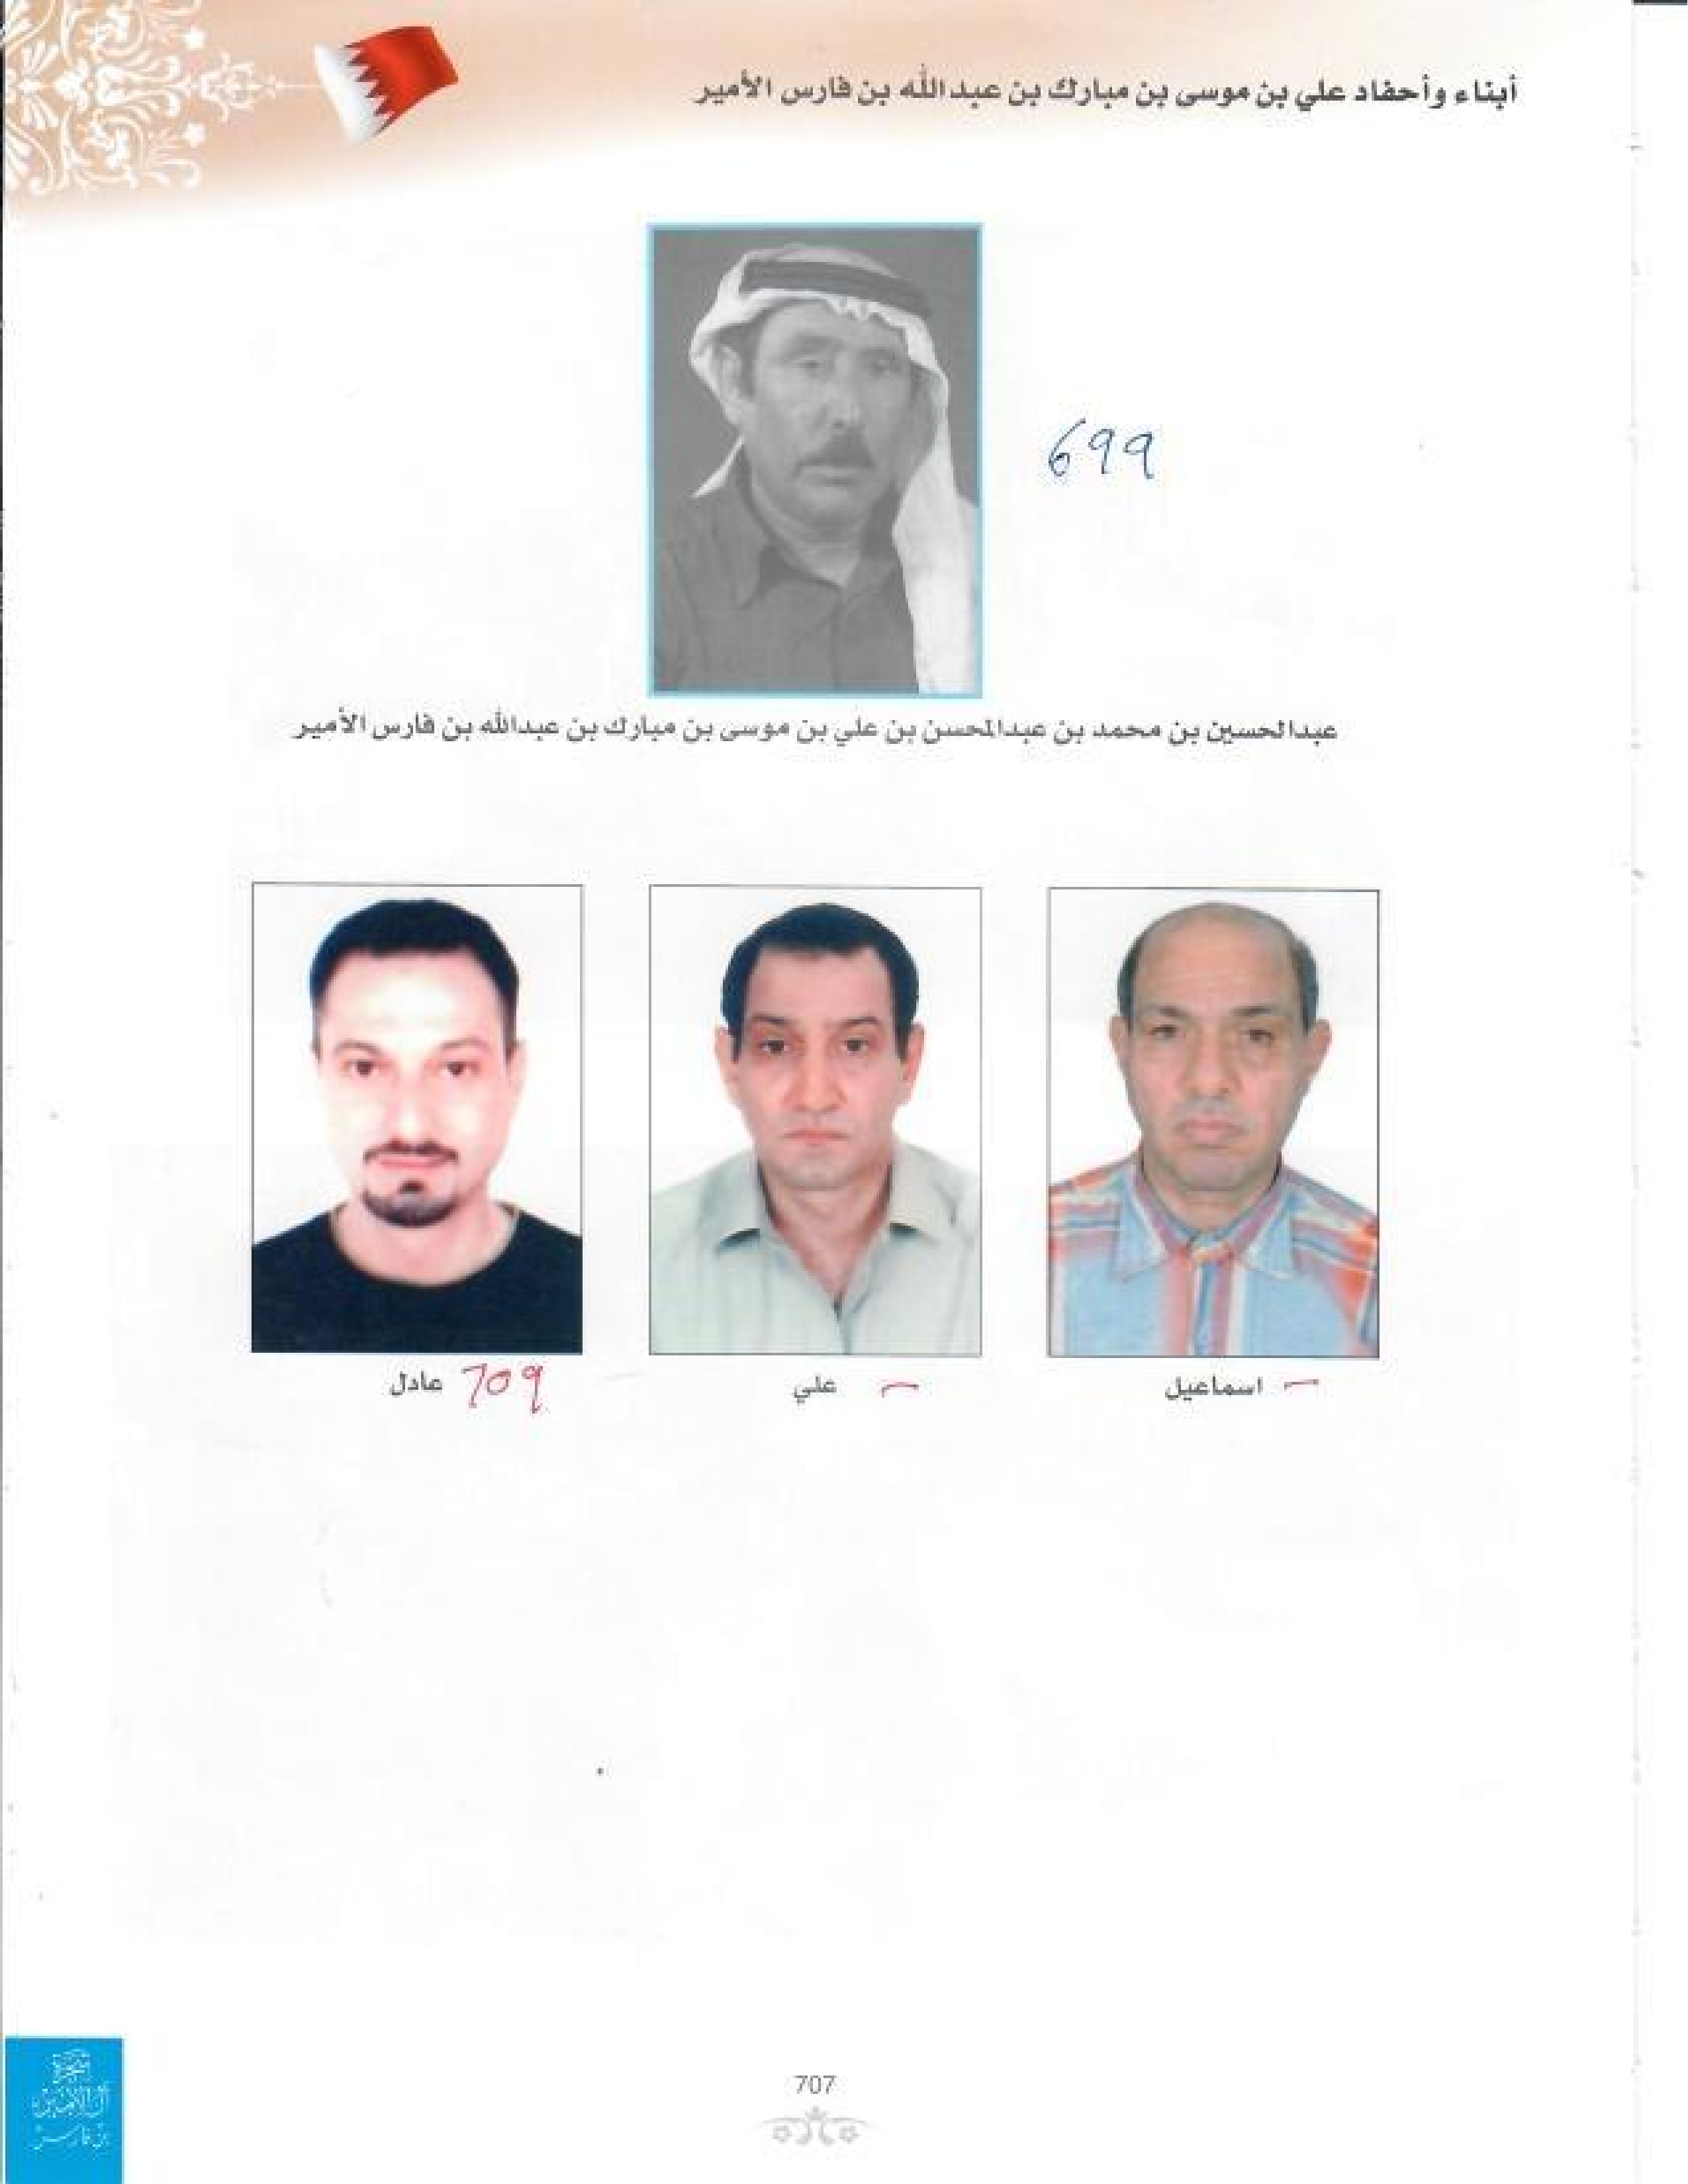 أبناء وأحفاد علي بن موسى بن مبارك بن عبدالله بن فارس الأمير
699
عبدالحسين بن محمد بن عبدالمحسن بن علي بن موسى بن مبارك بن عبدالله بن فارس الأمير
اسماعيل
علي
عادل 709
شجرة
آل الأمير
بن فارس
707